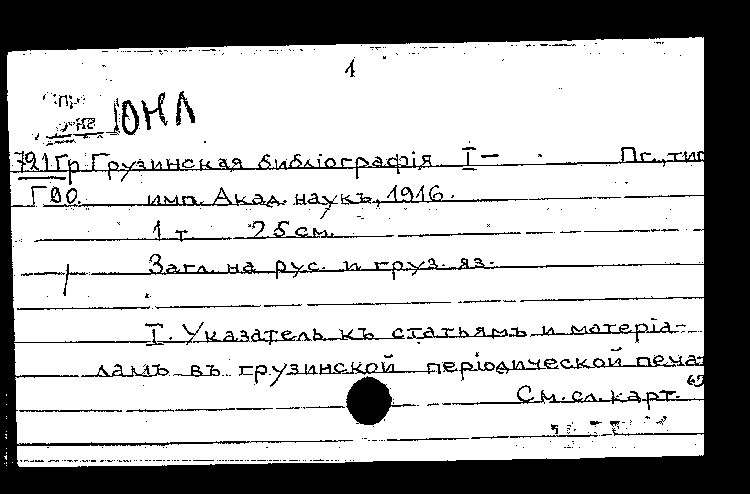 1
ЮНЛ
721Гр Грузинская библіографія I— Пг., тип
Г90. имп. Акад. наукъ, 1916.
1 т 25 см.
Загл. на рус. и груз. яз.
I. Указатель къ статьямъ и матеріа-
ламъ въ грузинской періодической печат
См. сл. карт.